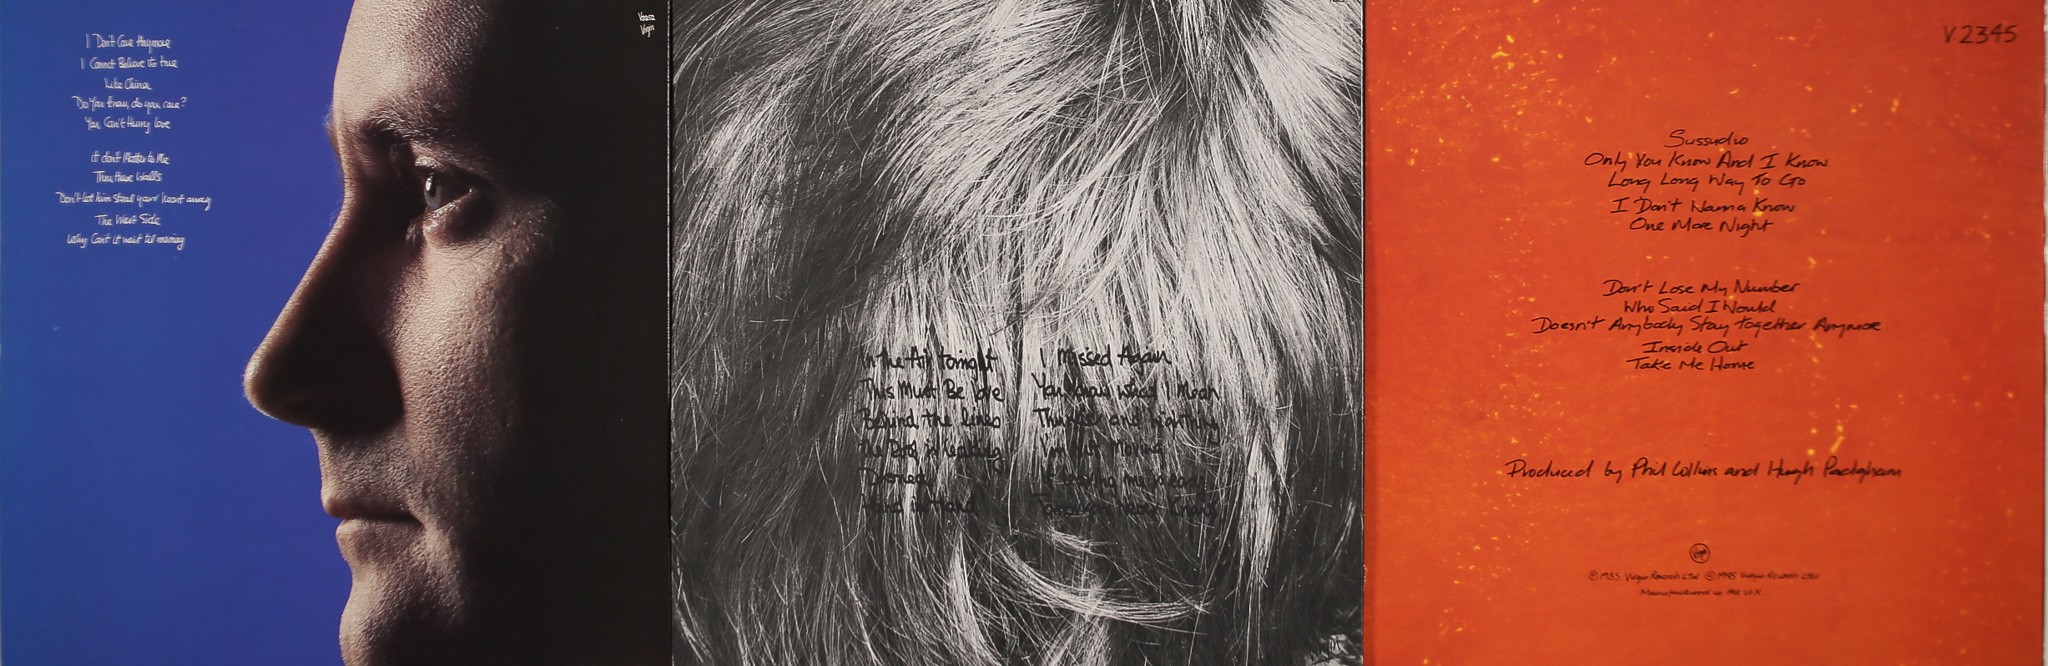 V2252
Virgin
I Don't Care Anymore
I Cannot Believe its true
Like China
Do You know, do you care?
You Can't Hurry love
it don't Matter to Me
Thru these Walls
Don't let him steal your heart away
The West Side
Why Can't it wait til morning
In the Air Tonight
This Must Be love
Behind the lines
The Roof is leaking
Droned
Hand in Hand
I Missed Again
You Know what I Mean
Thunder and lightning
I'm not Moving
If leaving me is easy
Tomorrow Never Knows
V 2345
Sussudio
Only You Know And I Know
Long Long Way To Go
I Don't Wanna Know
One More Night
Don't Lose My Number
Who Said I Would
Doesn't Anybody Stay together Anymore
Inside Out
Take Me Home
Produced by Phil Collins and Hugh Padgham
Virgin
Ⓟ 1985 Virgin Records Ltd © 1985 Virgin Records Ltd
Manufactured in the U.K.